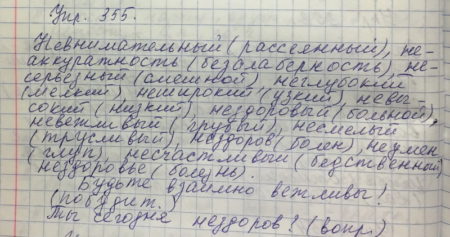 Упр. 355.
Невнимательный (рассеянный), не-
аккуратность (безалаберность), не-
серьезный (смешной), неглубокий
(мелкий), неширокий (узкий), невы-
сокий (низкий), нездоровый (больной),
невежливый (грубый), несмелый
(трусливый), нездоров (болен), неумен
(глуп), несчастливый (бедственный),
нездоровье (болезнь).
Будьте взаимно вежливы!
(побудит.)
Ты сегодня нездоров? (вопр.)